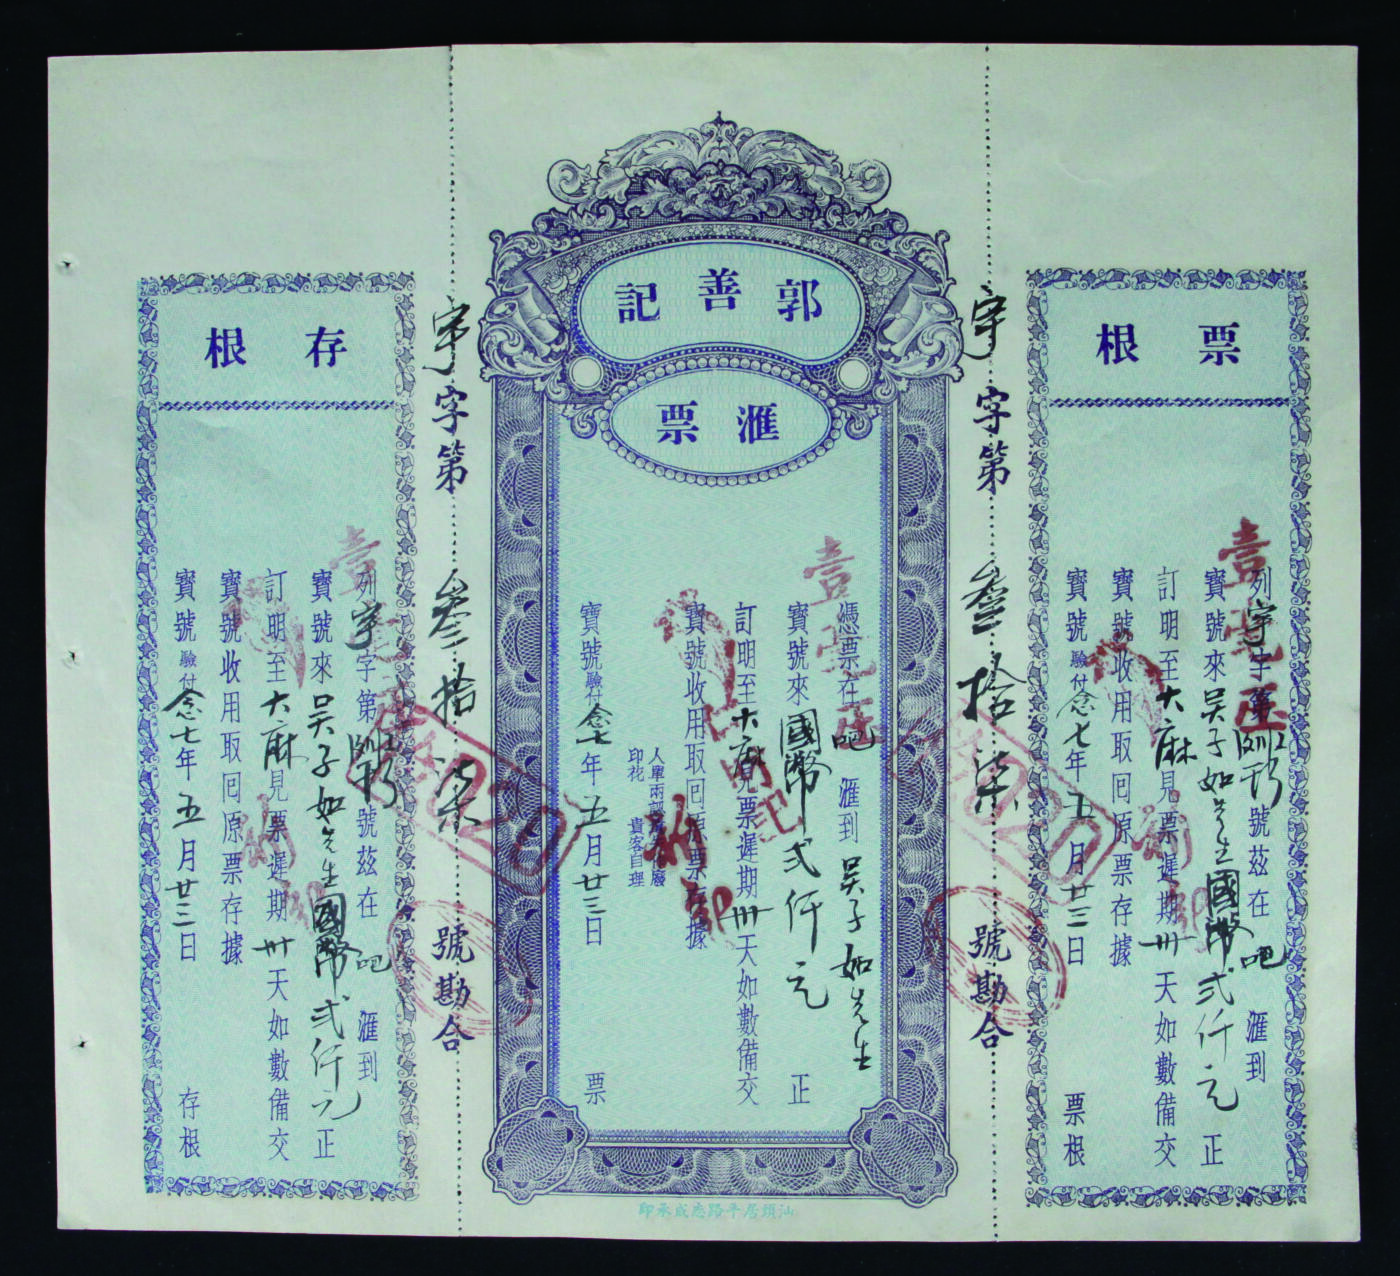 票根
列宇字第 號茲在叻滙到
寶號來吳子如先生國幣弍仟元正
訂明至大麻見票遲期卅天如數備交
寶號收用取回原票存據
寶號驗付念七年五月廿三日票根
宇字第叁拾柒號勘合
郭善記
滙票
憑票在叻滙到吳子如先生
寶號來國幣弍仟元正
訂明至大麻見票遲期卅天如數備交
寶號收用取回原票存據
人單兩認
印花貴客自理
寶號驗付念七年五月廿三日票
宇字第叁拾柒號勘合
存根
列宇字第 號茲在叻滙到
寶號來吳子如先生國幣弍仟元正
訂明至大麻見票遲期卅天如數備交
寶號收用取回原票存據
寶號驗付念七年五月廿三日存根
汕頭居平路志成承印